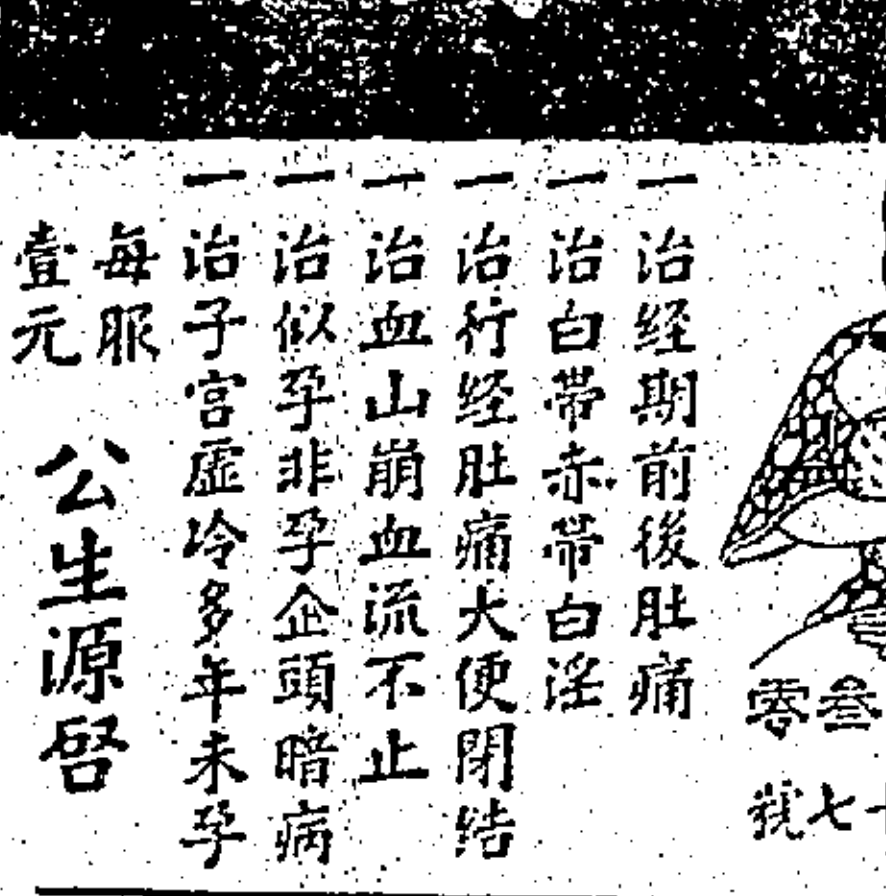 一治经期前後肚痛
一治白帶赤帶白淫
一治行经肚痛大便閉结
一治血山崩血流不止
一治似孕非孕企頭暗病
一治子宫虛冷多年未孕
每服
壹元
公生源啓
叁零
十七號